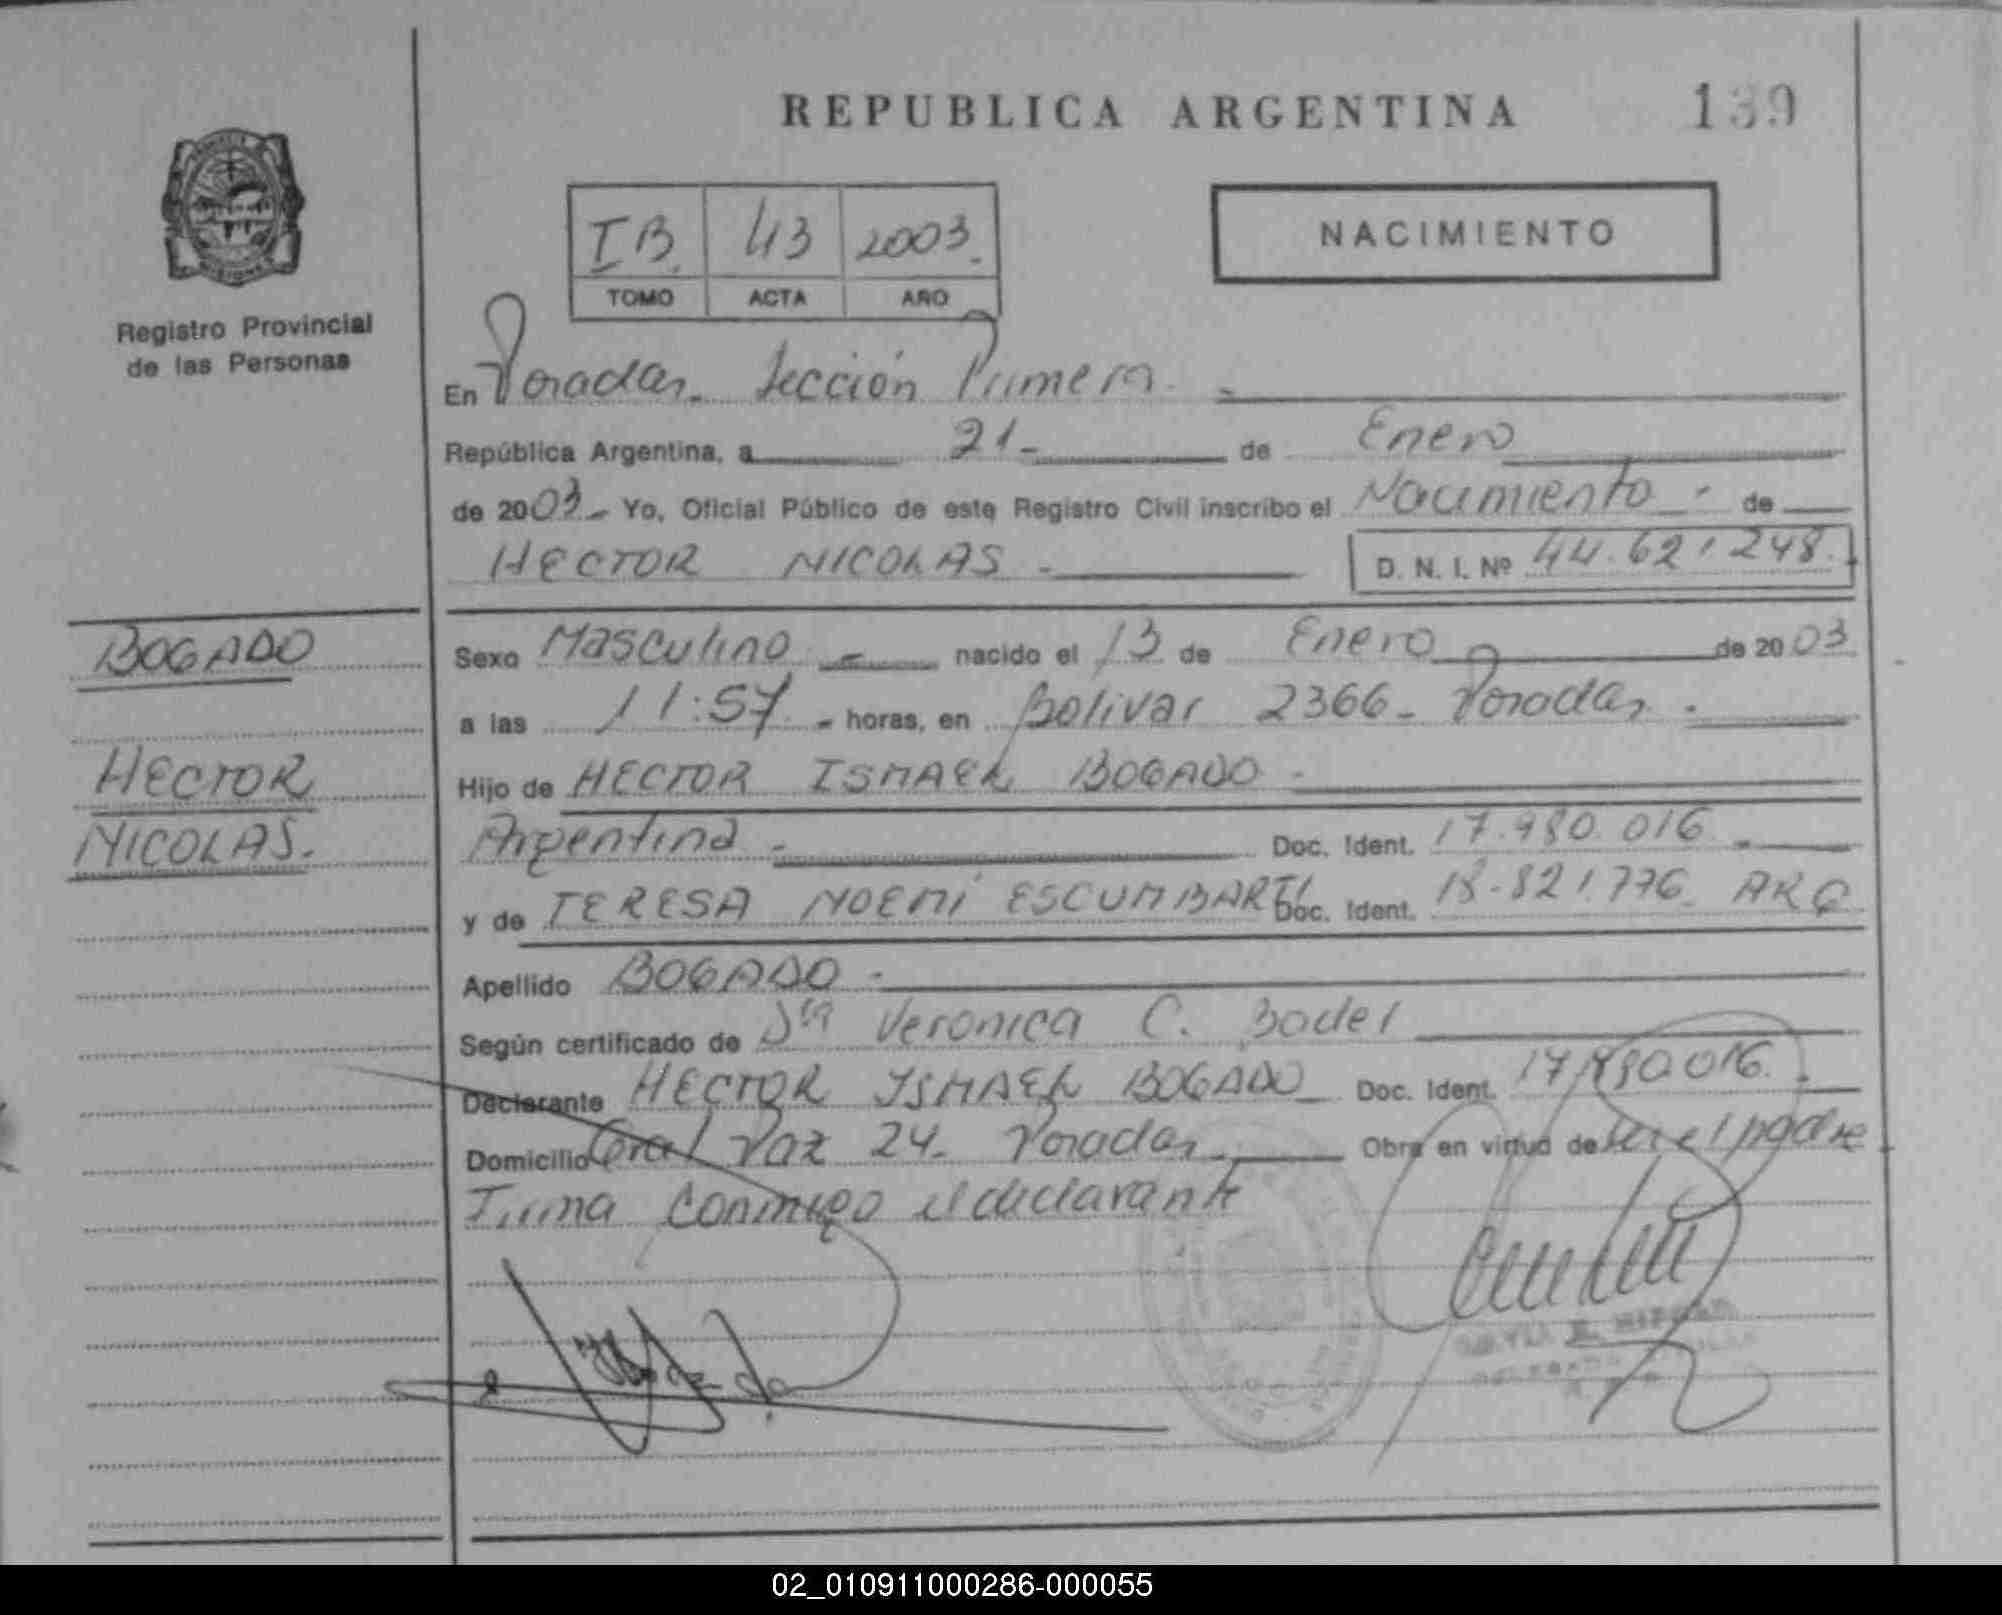 REPUBLICA ARGENTINA
139
IB. 43 2003.
TOMO ACTA AÑO
NACIMIENTO
Registro Provincial
de las Personas
En Posadas. Sección Primera -
República Argentina, a 21- de Enero
de 2003- Yo, Oficial Público de este Registro Civil inscribo el Nacimiento - de
HECTOR NICOLAS - D. N. I. Nº 44.621.248.
BOGADO
HECTOR
NICOLAS.
Sexo Masculino - nacido el 13 de Enero de 2003
a las 11:57 - horas, en Bolivar 2366- Posadas -
Hijo de HECTOR ISMAEL BOGADO -
Argentina - Doc. Ident. 17.980.016 -
y de TERESA NOEMI Doc. Ident. 18.821.776 ARG
Apellido BOGADO -
Según certificado de Veronica C.
Declarante HECTOR ISMAEL BOGADO Doc. Ident. 17.980.016.
Domicilio Gral Paz 24- Posadas Obra en virtud de ser el padre
Firma conmigo el declarante
02_010911000286-000055